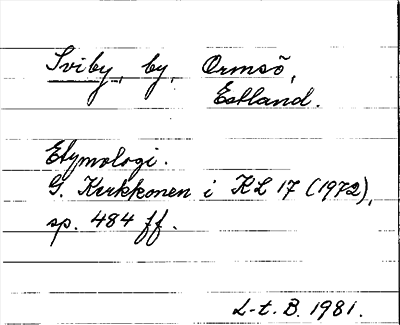 Sviby, by, Ormsö,
Estland.
Etymologi.
G. Kerkkonen i KL 17 (1972),
sp. 484 ff.
L-t. B. 1981.